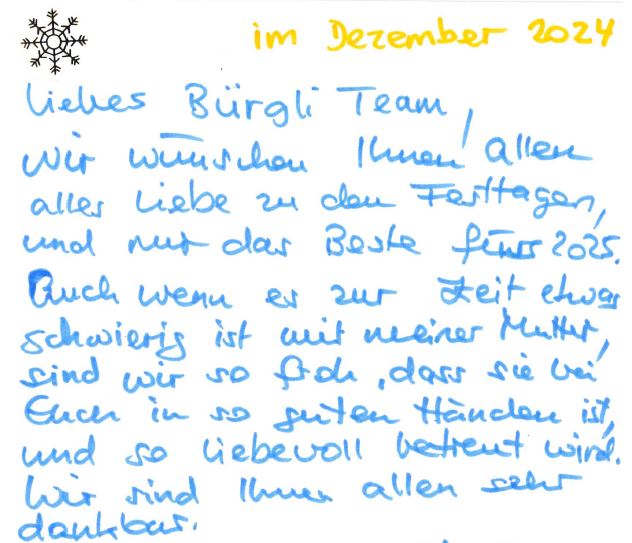 im Dezember 2024
Liebes Bürgli Team,
wir wünschen Ihnen allen
alles Liebe zu den Festtagen,
und nur das Beste fürs 2025.
Auch wenn es zur Zeit etwas
schwierig ist mit meiner Mutter,
sind wir so froh, dass sie bei
Euch in so guten Händen ist,
und so liebevoll betreut wird.
Wir sind Ihnen allen sehr
dankbar.